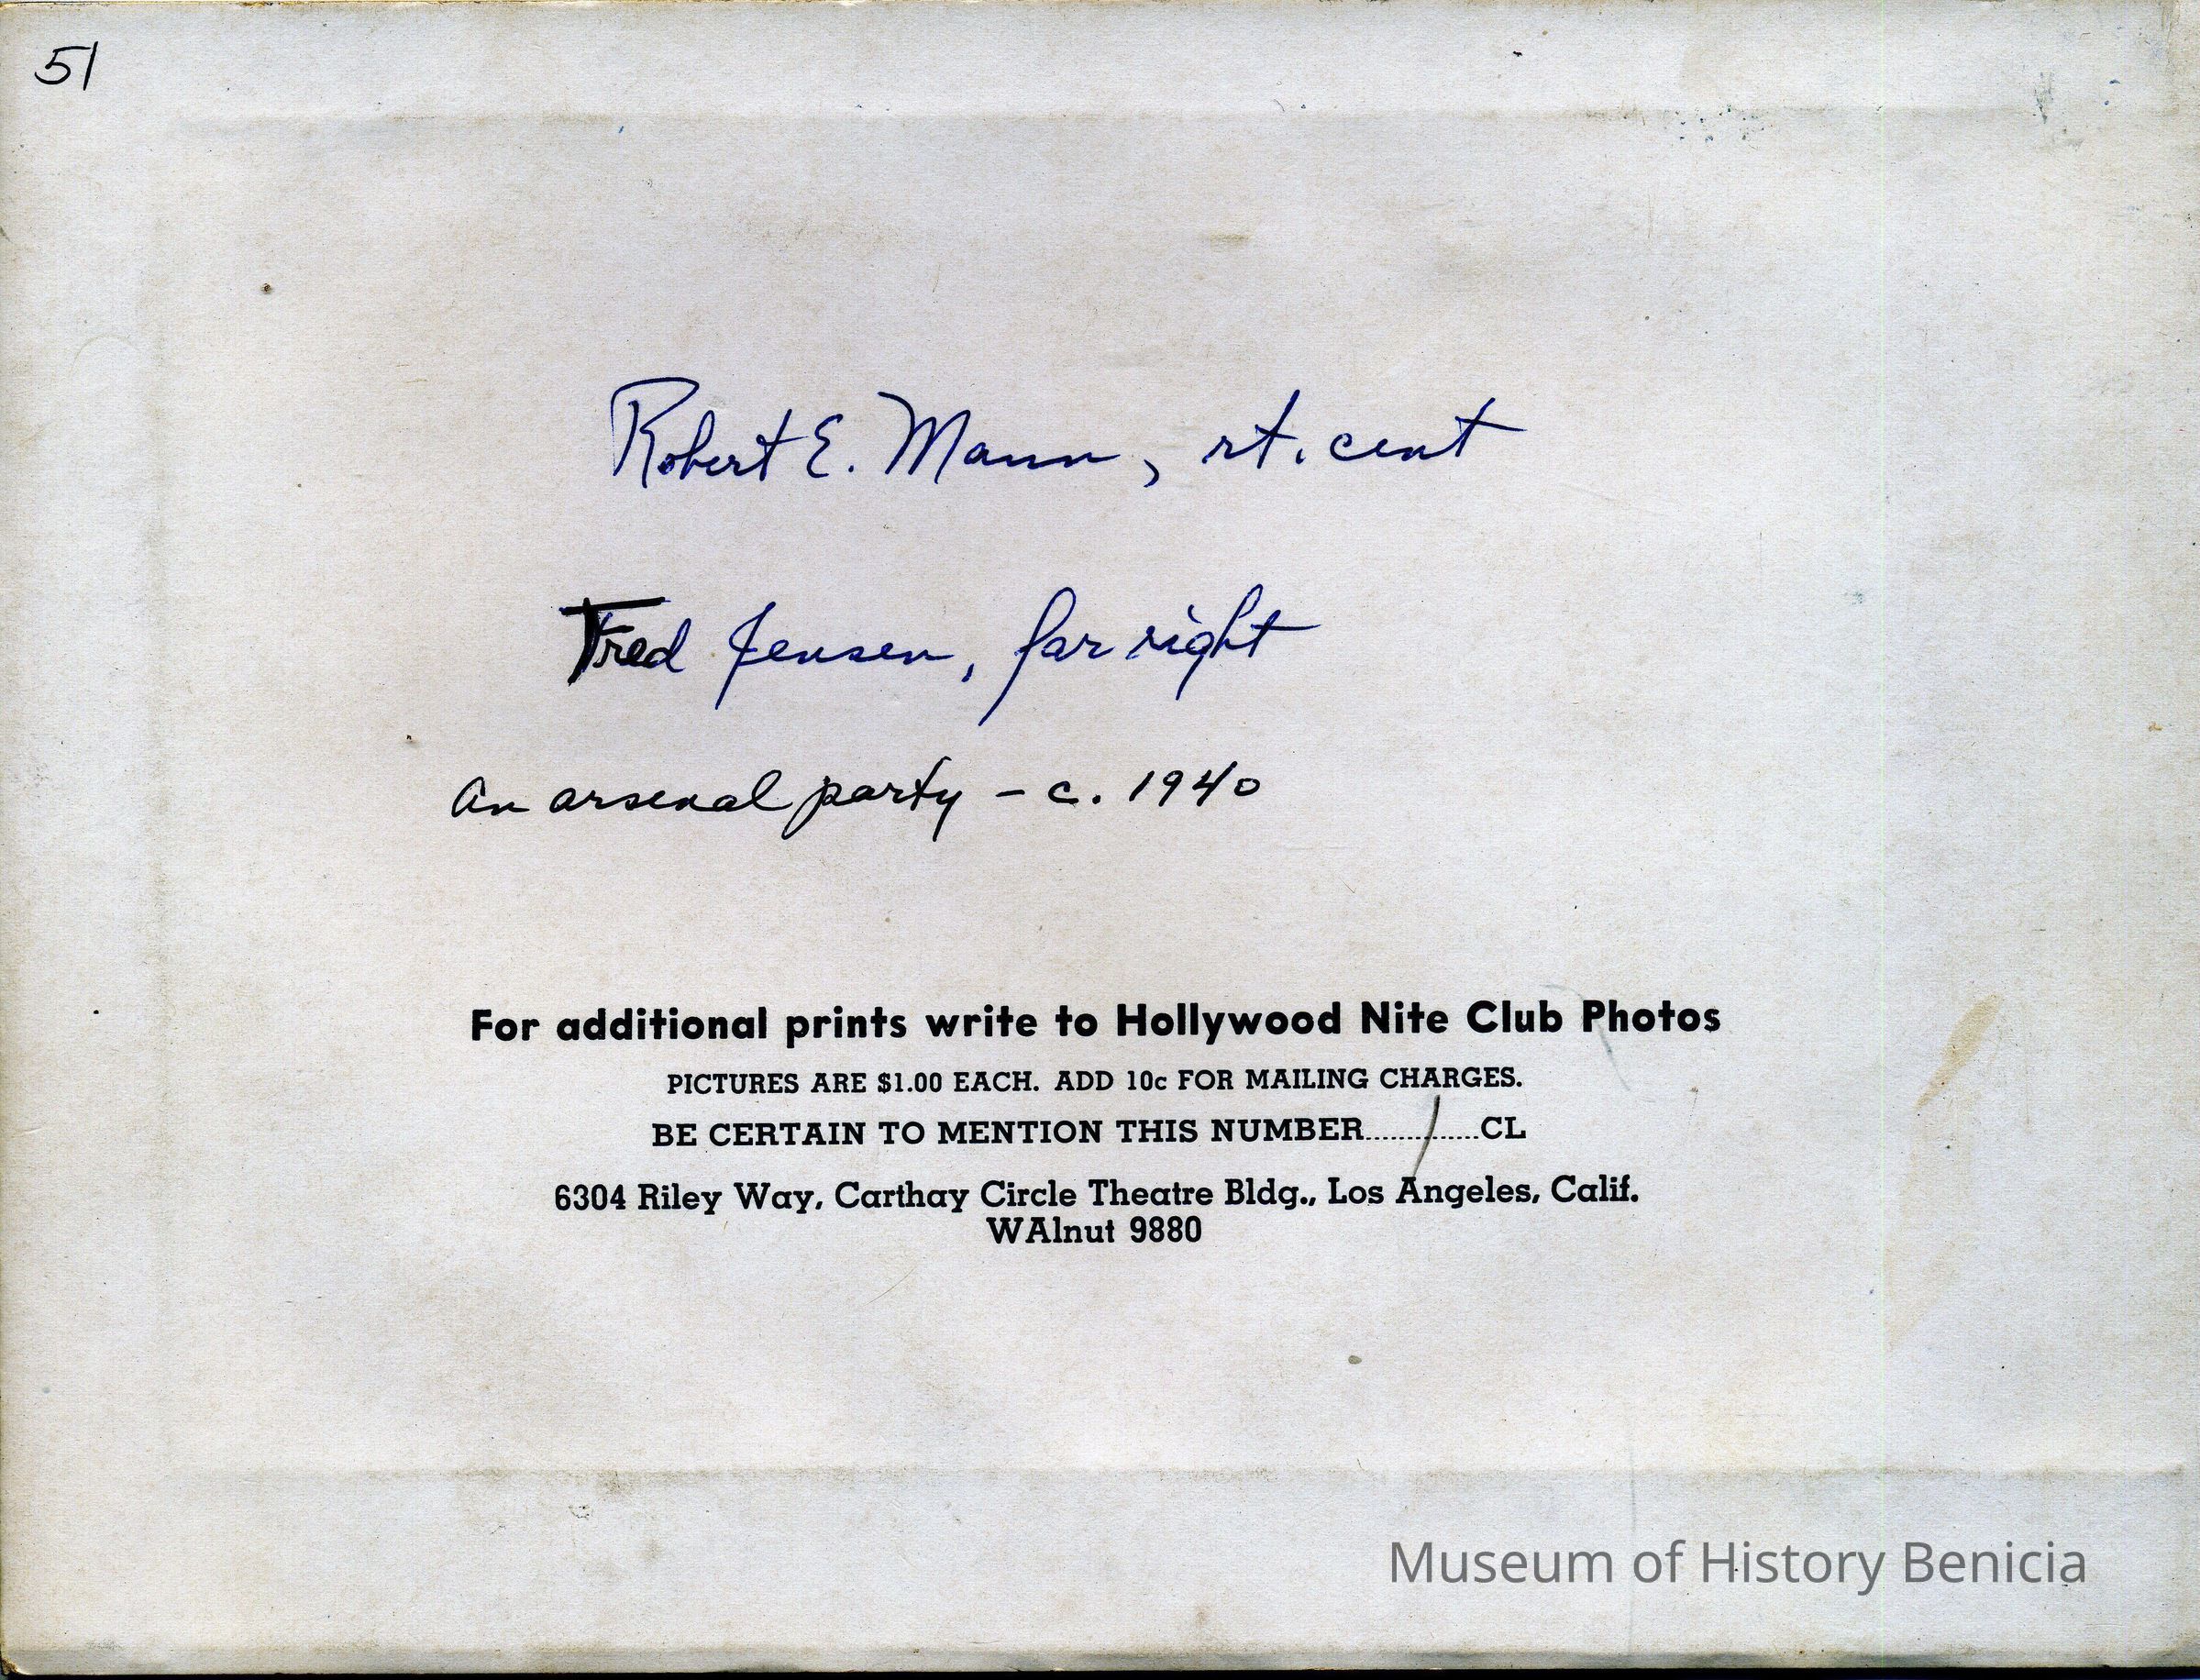 51
Robert E. Mann, rt. cent
Fred Jensen, far right
An arsenal party - c. 1940
For additional prints write to Hollywood Nite Club Photos
PICTURES ARE $1.00 EACH. ADD 10c FOR MAILING CHARGES.
BE CERTAIN TO MENTION THIS NUMBER......../......CL
6304 Riley Way, Carthay Circle Theatre Bldg., Los Angeles, Calif.
WAlnut 9880
Museum of History Benicia